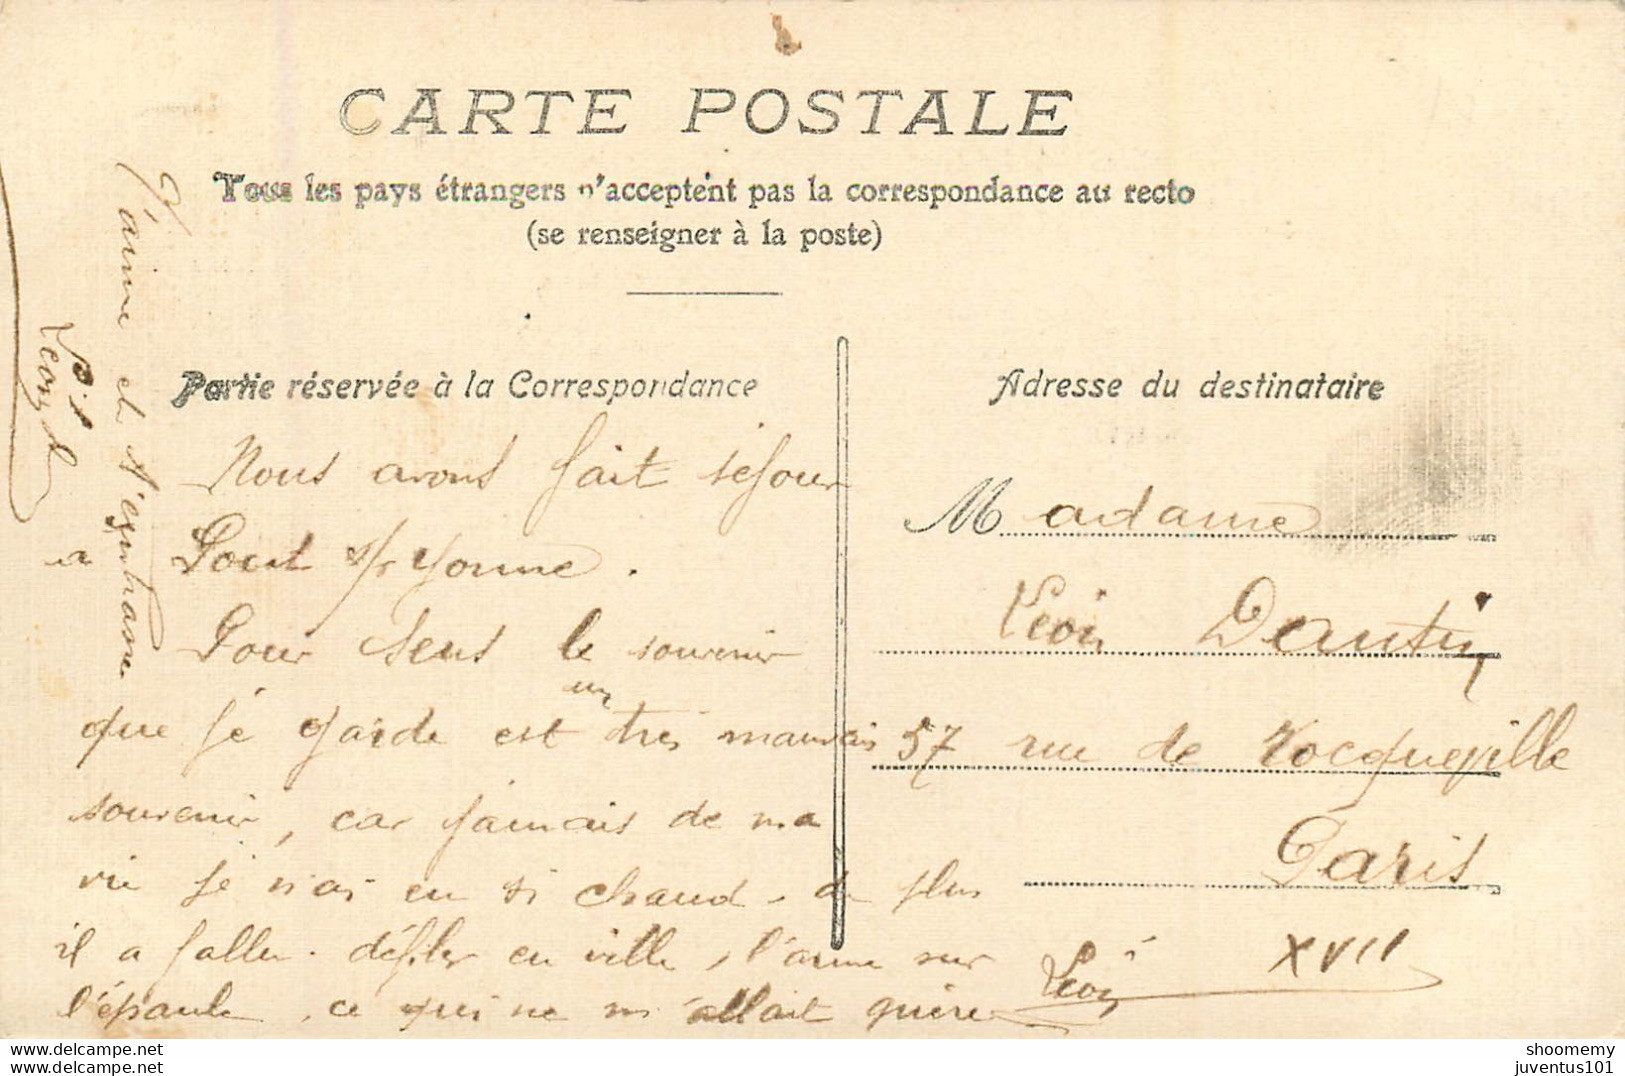 CARTE POSTALE
Tous les pays étrangers n'acceptent pas la correspondance au recto
(se renseigner à la poste)
Partie réservée à la Correspondance
Adresse du destinataire
Nous avons fait séjour
a Pont s/r Yonne.
Pour Sens le souvenir
que je garde est un très mauvais
souvenir, car jamais de ma
vie je n'ai eu si chaud. de plus
il a fallu défiler en ville, l'arme sur
l'épaule, ce qui ne m'allait guère
Léon
t'aime et t'embrasse
Léon
Madame
Léon Dantin
57 rue de Tocqueville
Paris
XVII
shoomemy
juventus101